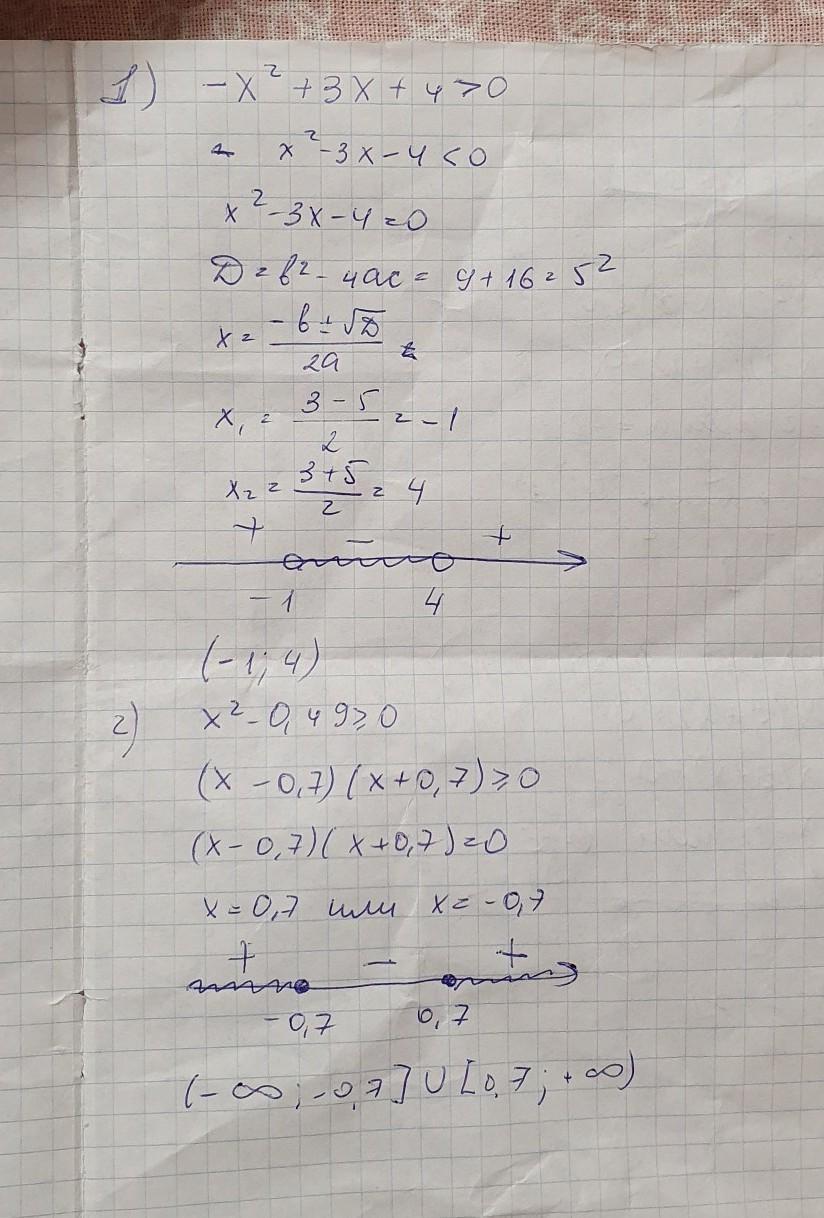 1) -x² + 3x + 4 > 0
x² - 3x - 4 < 0
x² - 3x - 4 = 0
D = b² - 4ac = 9 + 16 = 5²
x = (-b ± √D)/2a
x₁ = (3 - 5)/2 = -1
x₂ = (3 + 5)/2 = 4
+ - +
-1 4
(-1; 4)
2) x² - 0,49 ≥ 0
(x - 0,7)(x + 0,7) ≥ 0
(x - 0,7)(x + 0,7) = 0
x = 0,7 или x = -0,7
+ - +
-0,7 0,7
(-∞; -0,7] ∪ [0,7; +∞)